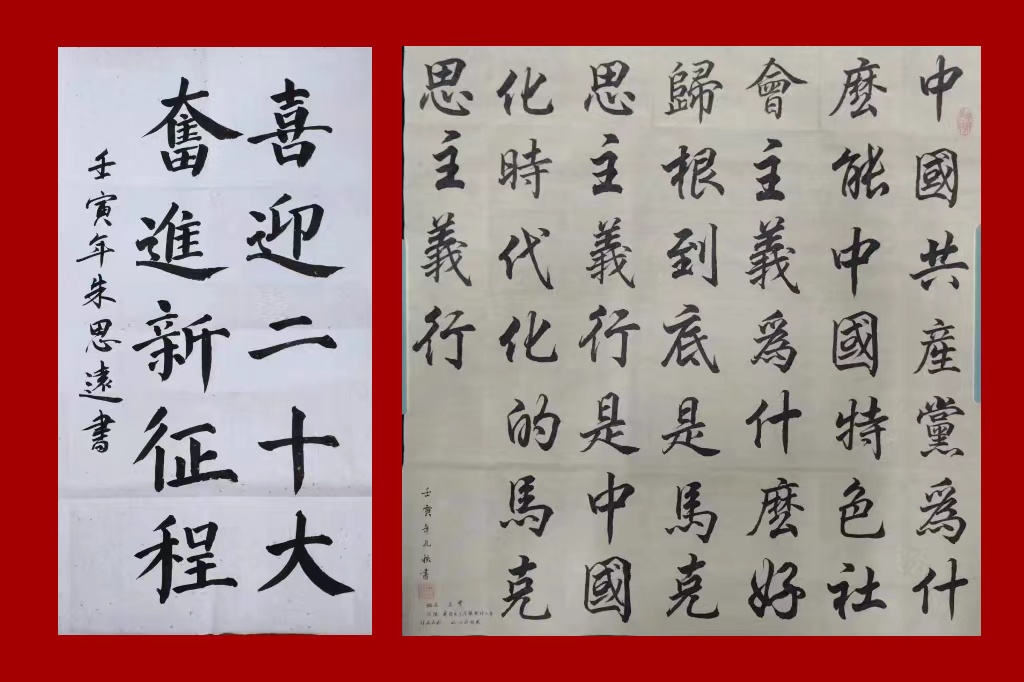 喜迎二十大
奮進新征程
壬寅年朱思遠書
中國共産黨爲什
麼能中國特色社
會主義爲什麼好
歸根到底是馬克
思主義行是中國
化時代化的馬克
思主義行
壬寅年孔書